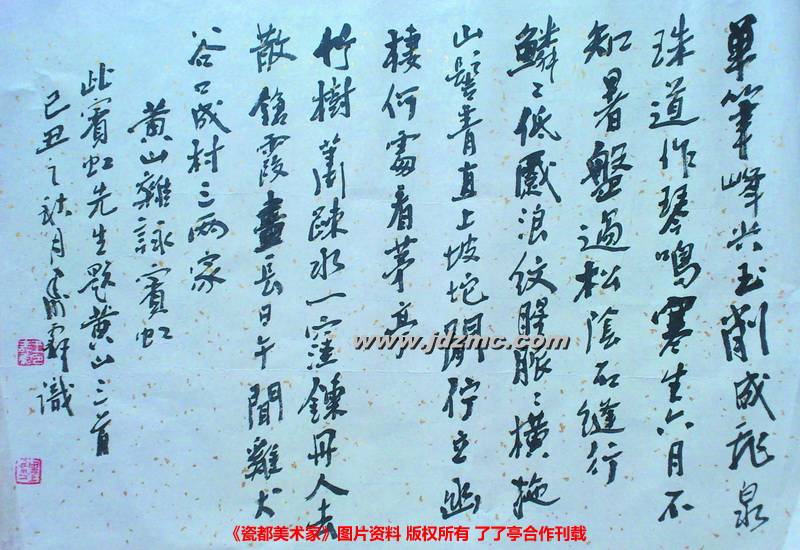 卓筆峰尖玉削成飛泉
珠迸作琴鳴寒生六月不
知暑盤過松陰石縫行
鱗〻低蹙浪紋腥脈〻橫拖
山髻青直上坡坨閒佇立幽
棲何處看茅亭
竹樹蕭疎水一窪鍊丹人去
散餘霞晝長日午聞雞犬
谷口成村三兩家
黃山雜詠賓虹
此賓虹先生題黃山三首
己丑之秋月識
www.jdzmc.com
《瓷都美术家》图片资料 版权所有 了了亭合作刊载